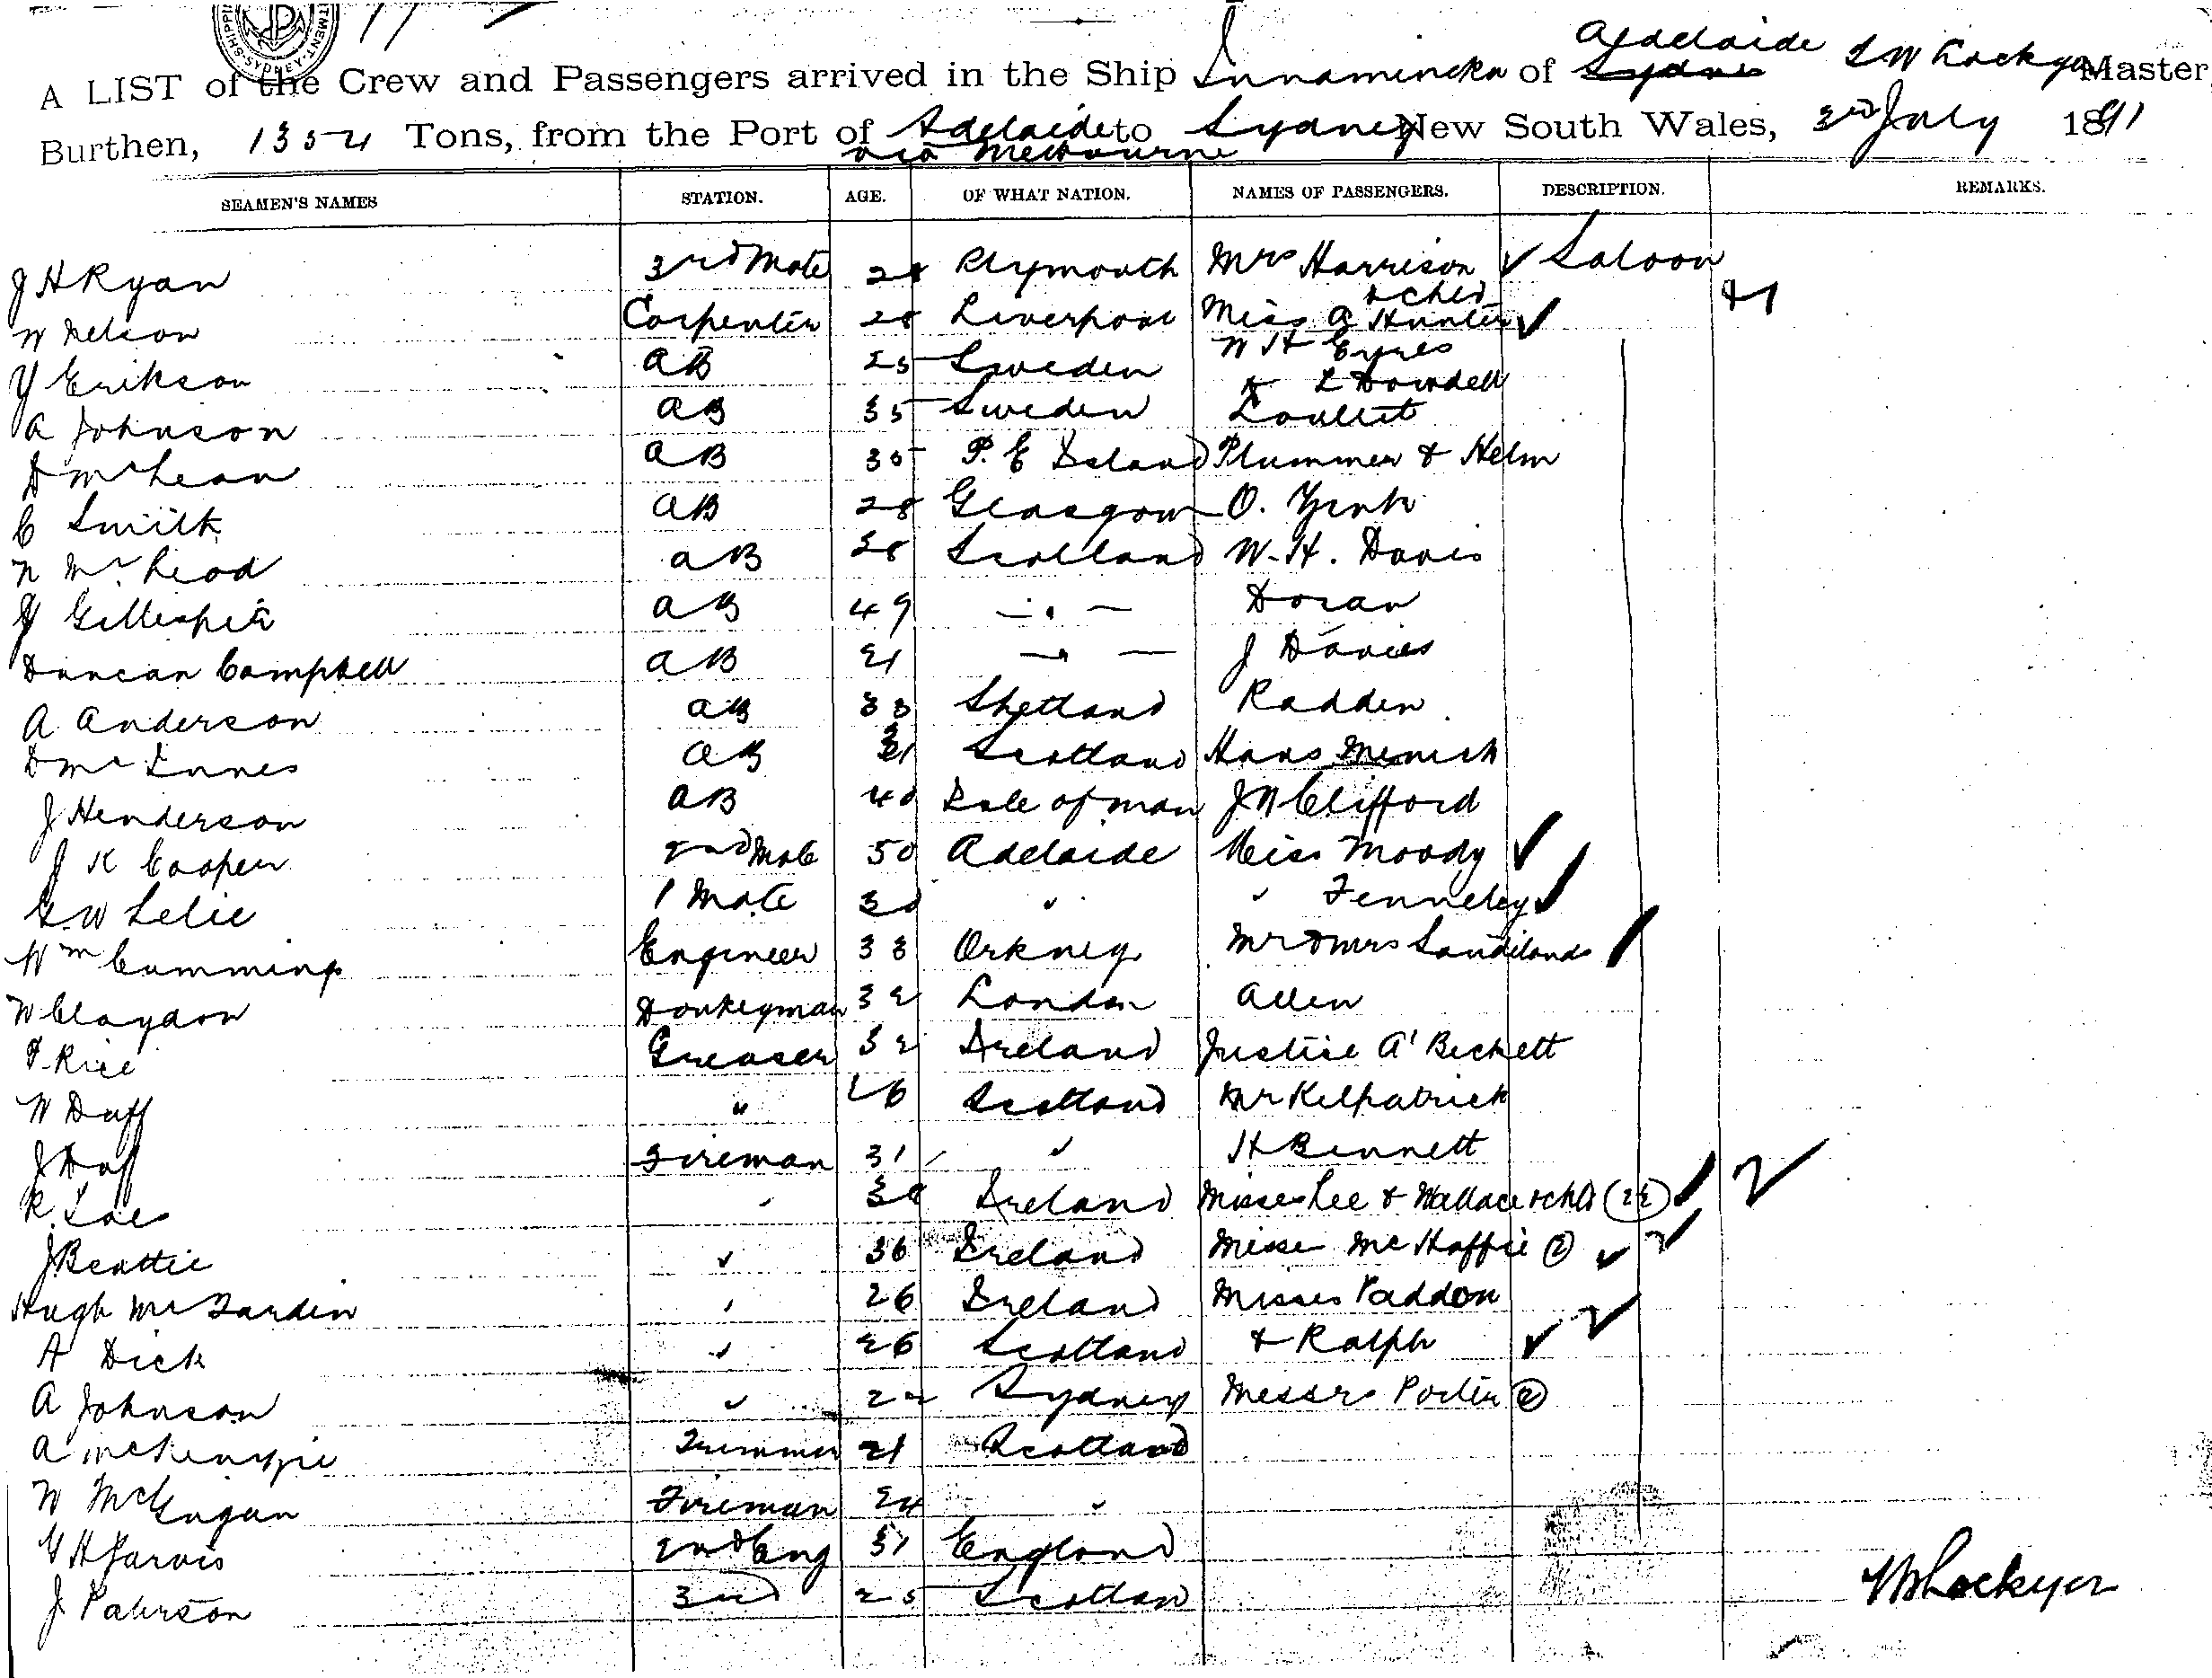 A LIST of the Crew and Passengers arrived in the Ship Innamincka of Adelaide Sydney Lockyer Master,
Burthen, 1354 Tons, from the Port of Adelaide to Sydney New South Wales, 3rd July 1891
via Melbourne
SEAMEN'S NAMES STATION. AGE. OF WHAT NATION. NAMES OF PASSENGERS. DESCRIPTION. REMARKS.
J H Ryan 3rd Mate 28 Plymouth Mrs Harrison Saloon
& child
W Nelson Carpenter 28 Liverpool Miss A Hunter
W H Eyres
Y Erikson AB 25 Sweden
L Dowdell
A Johnson AB 35 Sweden
D McLean AB 35 P. E Island Plummer & Helm
C Smith AB 28 Glasgow O.
N McLeod AB 38 Scotland W. H. Davis
Gillespie AB 49 Doran
Duncan Campbell AB 21 J Davies
A Anderson AB 33 Shetland Radden
D McInnes AB 31 Scotland Hans
J Henderson AB 40 Isle of Man J N Clifford
J K Cooper 2nd Mate 50 Adelaide Miss Moody
G W Lelie 1 Mate 30 " " Fenneley
Wm Cummings Engineer 33 Orkney Mr & Mrs Sandilands
W Claydon Donkeyman 32 London Allen
Rice Greaser 32 Ireland Justice A'Beckett
W Duff " 26 Scotland Mr Kilpatrick
J Duf Fireman 31 " H Bennett
R. " 38 Ireland Misses Lee & Wallace & chld
J Beattie " 36 Ireland Misses McHaffie (2)
Hugh " 26 Ireland Misses Paddon
A Dick " 26 Scotland & Ralph
A Johnson " 22 Sydney Messrs Porter (2)
A McKenzie Trimmer 21 Scotland
W McGugan Fireman 24 "
Jarvis 2nd Eng 31 England
J Paterson 3rd 25 Scotlan
Lockyer